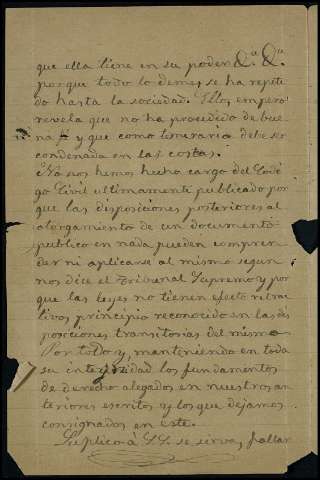 que ella tiene en su poder Dª. Dª.
porque todo lo demas se ha repeti
do hasta la sociedad. Ellos, empero
revela que no ha procedido de bue
na f y que como temeraria debe ser
condenada en las costas.
No nos hemos hecho cargo del Codi
go Civil ultimamente publicado por
que las disposiciones posteriores al
otorgamiento de un documento
publico en nada pueden compren
der ni aplicarse al mismo segun
nos dice el Tribunal Supremo y por
que las leyes no tienen efecto retroac
tivos, principio reconocido en las dis
posiciones transitorias del mismo
Por todo y, manteniendo en toda
su integridad los fundamentos
de derecho alegados en nuestros an
teriores escritos y los que dejamos
consignados en este.
Suplico á S.S. se sirva, fallar